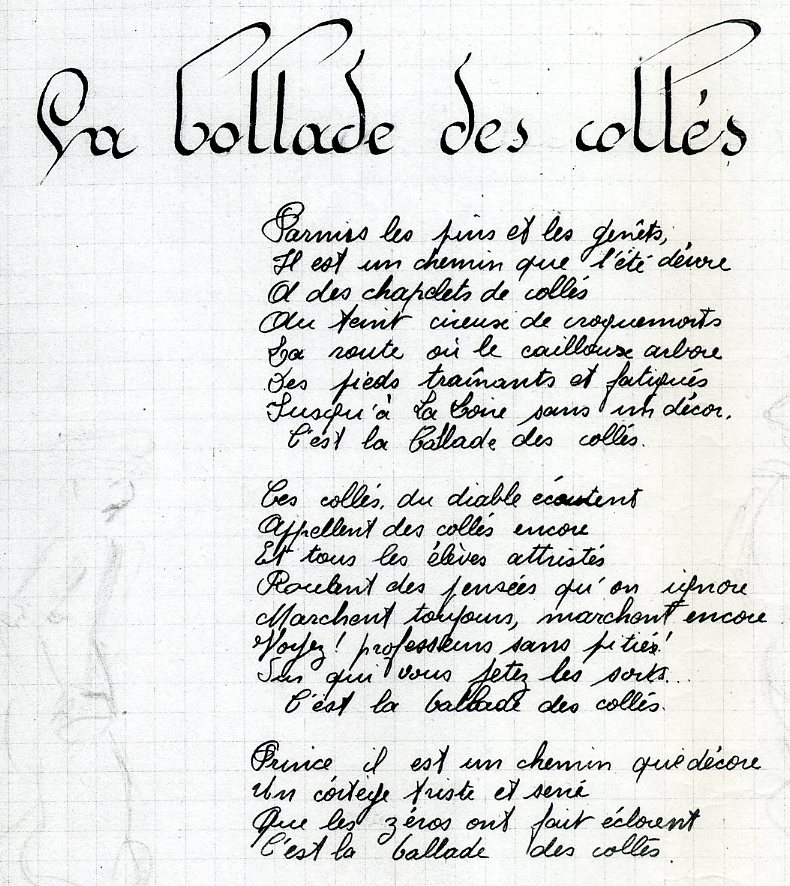 La ballade des collés
Parmis les pins et les genêts,
Il est un chemin que l'été dévore
A des chapelets de collés
Au teint cireux de croquemorts
La route où le cailloux arbore
Des pieds traînants et fatigués
Jusqu'à La Loire sans un décor.
C'est la ballade des collés.
Ces collés, du diable écoutent
Appellent des collés encore
Et tous les élèves attristés
Roulent des pensées qu'on ignore
Marchent toujours, marchent encore
Voyez ! professeurs sans pitiés !
Sur qui vous jetez les sorts...
C'est la ballade des collés.
Prince il est un chemin que décore
Un cortège triste et serré
Que les zéros ont fait éclorent
C'est la ballade des collés.